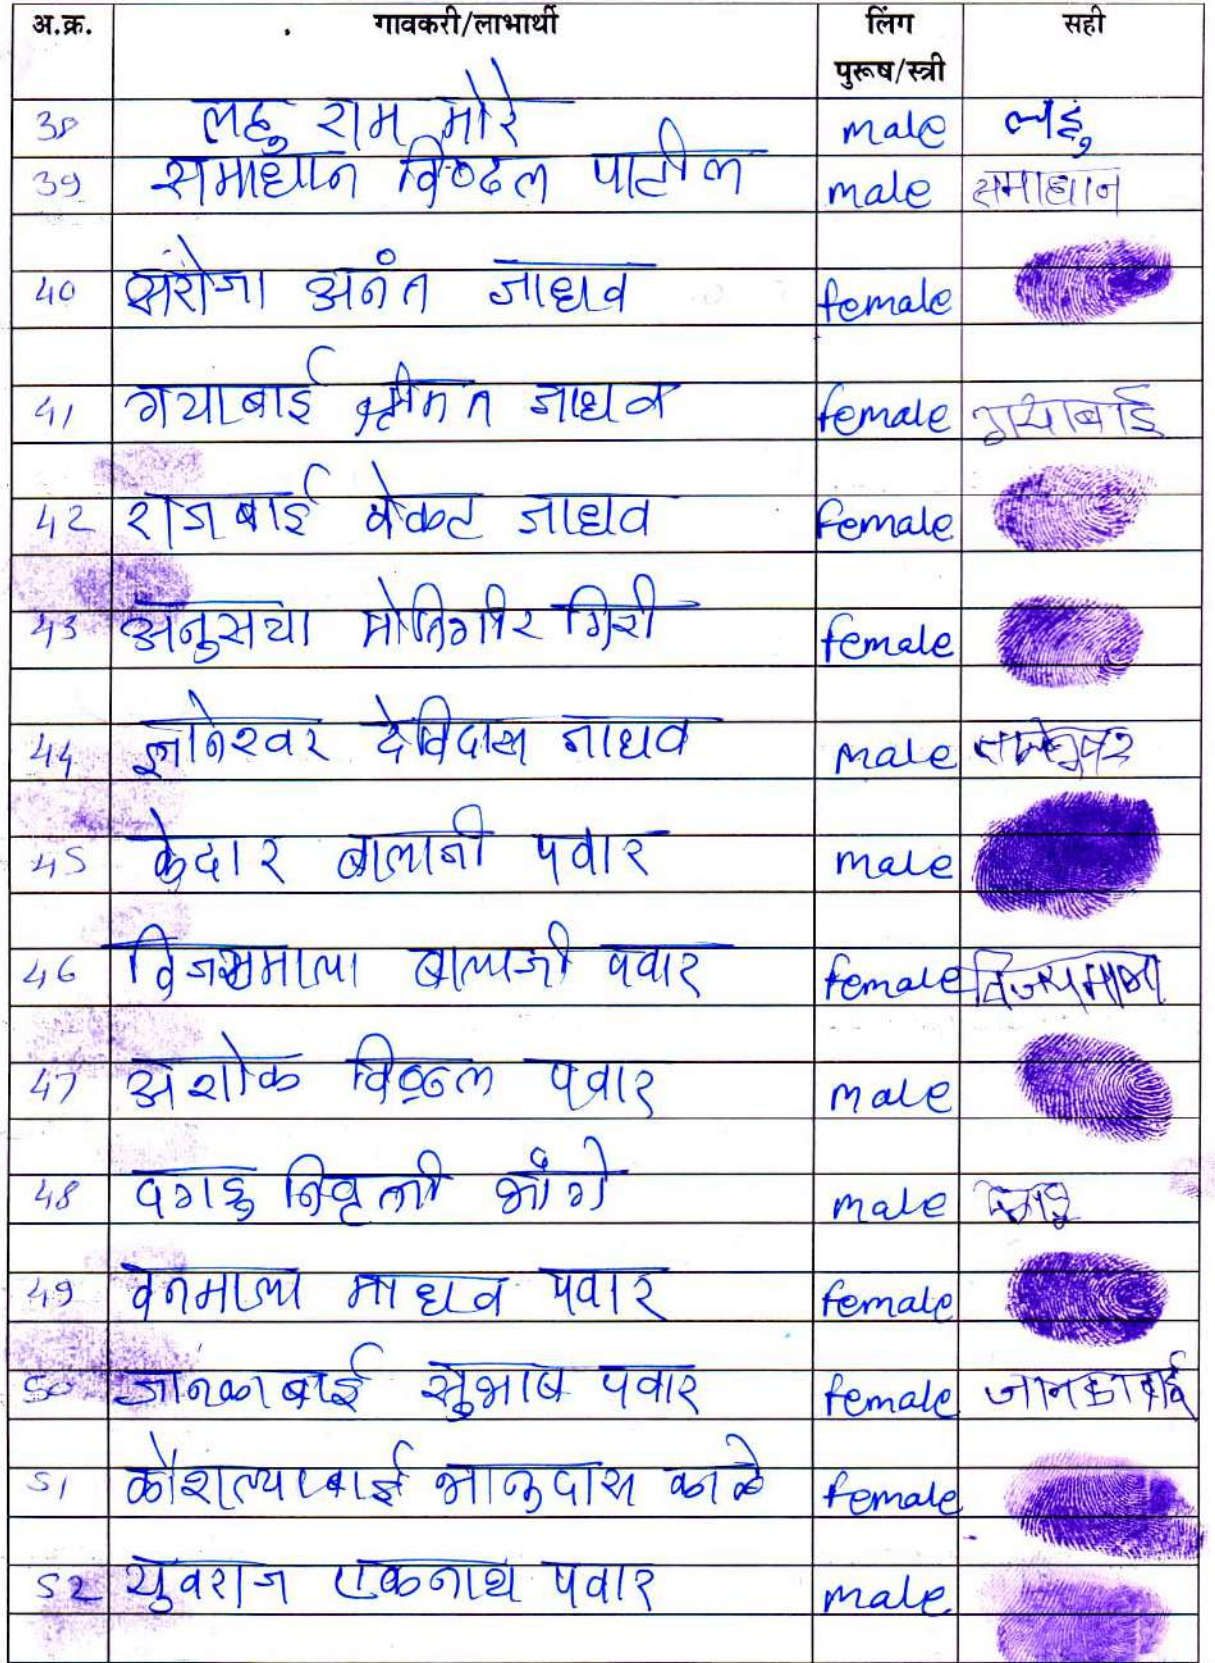 अ.क्र. गावकरी/लाभार्थी लिंग सही
पुरूष/स्त्री
38 लहू राम मोरे male लहू
39 समाधान विठ्ठल पाटील male समाधान
40 सरोजा अनंत जाधव female
41 गयाबाई जाधव female गयाबाई
42 राजबाई वेंकट जाधव female
43 अनुसया मोतिगीर गिरी female
44 ज्ञानेश्वर देविदास जाधव male
45 केदार बालाजी पवार male
46 विजयमाला बालाजी पवार female विजयमाला
47 अशोक विठ्ठल पवार male
48 दगडु निवृत्ती male दगडु
49 वनमाला माधव पवार female
50 जानकाबाई सुभाष पवार female जानकाबाई
51 कौशल्याबाई भानुदास काळे female
52 युवराज एकनाथ पवार male